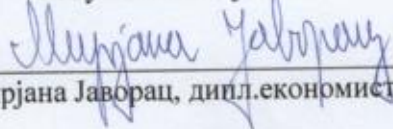 Мирјана Јаворац
рјана Јаворац, дипл.економист